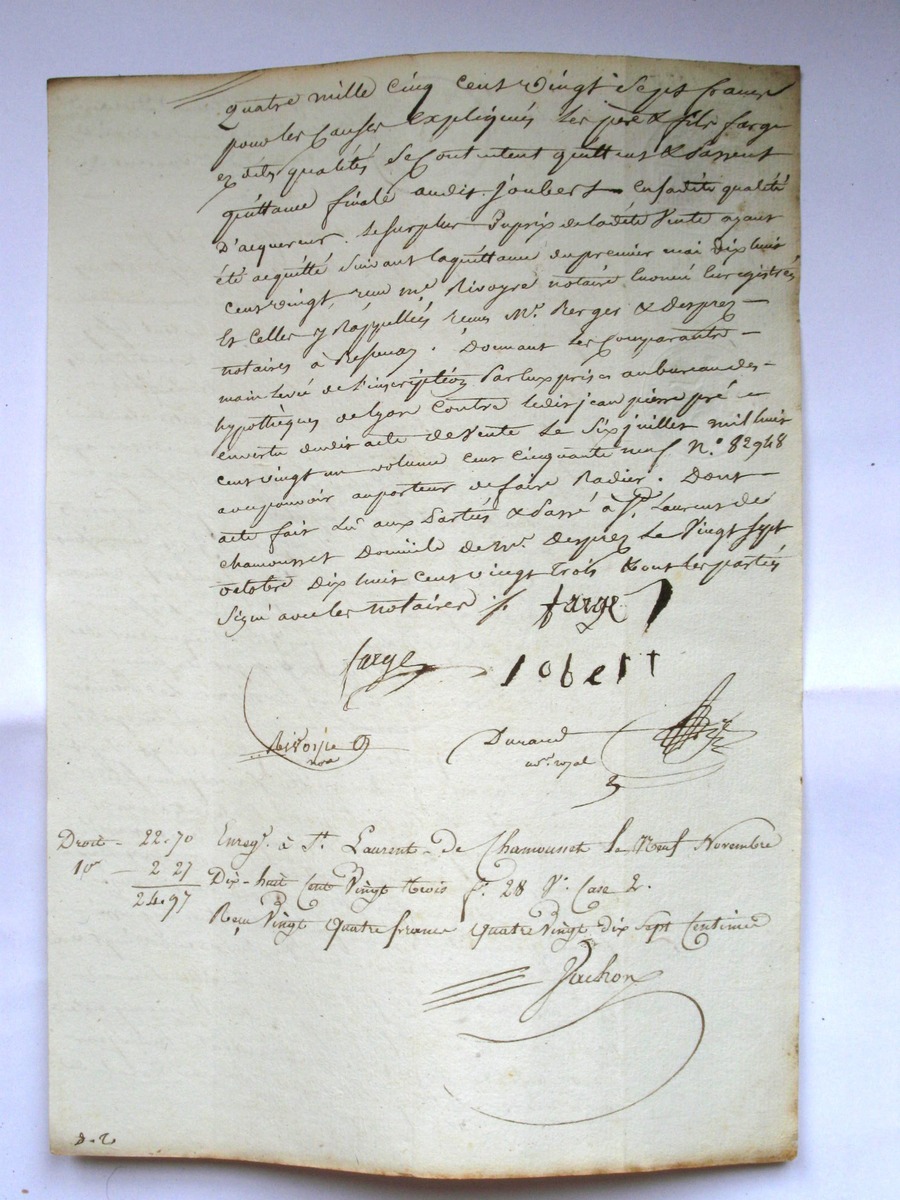 quatre mille cinq cent vingt sept francs
pour les causes expliquées les père & fils farge
ez dits qualités se contentent quittent & passent
quittance finale audit joubert en sa dite qualité
D'acquereur. le surplus du prix de la dite Vente ayant
été acquitté suivant la quittance du premier mai dix huit
cent vingt reçu me Rivoyre notaire enregistrée
Et Celles y Rappellées reçues Mes Berger & desprez
notaires à . Donnant les Comparants
main levée de l'inscription par eux prise au bureau des
hypothèques de lyon contre ledit jean pierre pré en
en vertu dudit acte de Vente le Six juillet mil huit
cent vingt un volume cent cinquante neuf N.o 82948
avec pouvoir au porteur de faire Radier. Dont
acte fait Lu aux Parties & Passé à St. Laurent de
chamousset Domicile de Me. desprez le Vingt sept
octobre Dix huit cent vingt trois tous les parties
Signé avec les notaires ./. farge
farge Jobert
Rivoire Durand
nre nore. royal
Droit - 22.70 Enregé. à St. Laurent-de Chamousset le Neuf Novembre
10e - 2 27 Dix-huit Cent Vingt trois fo. 28 Vo. Case 2.
24.97 Reçu Vingt quatre francs quatre Vingt dix Sept Centimes